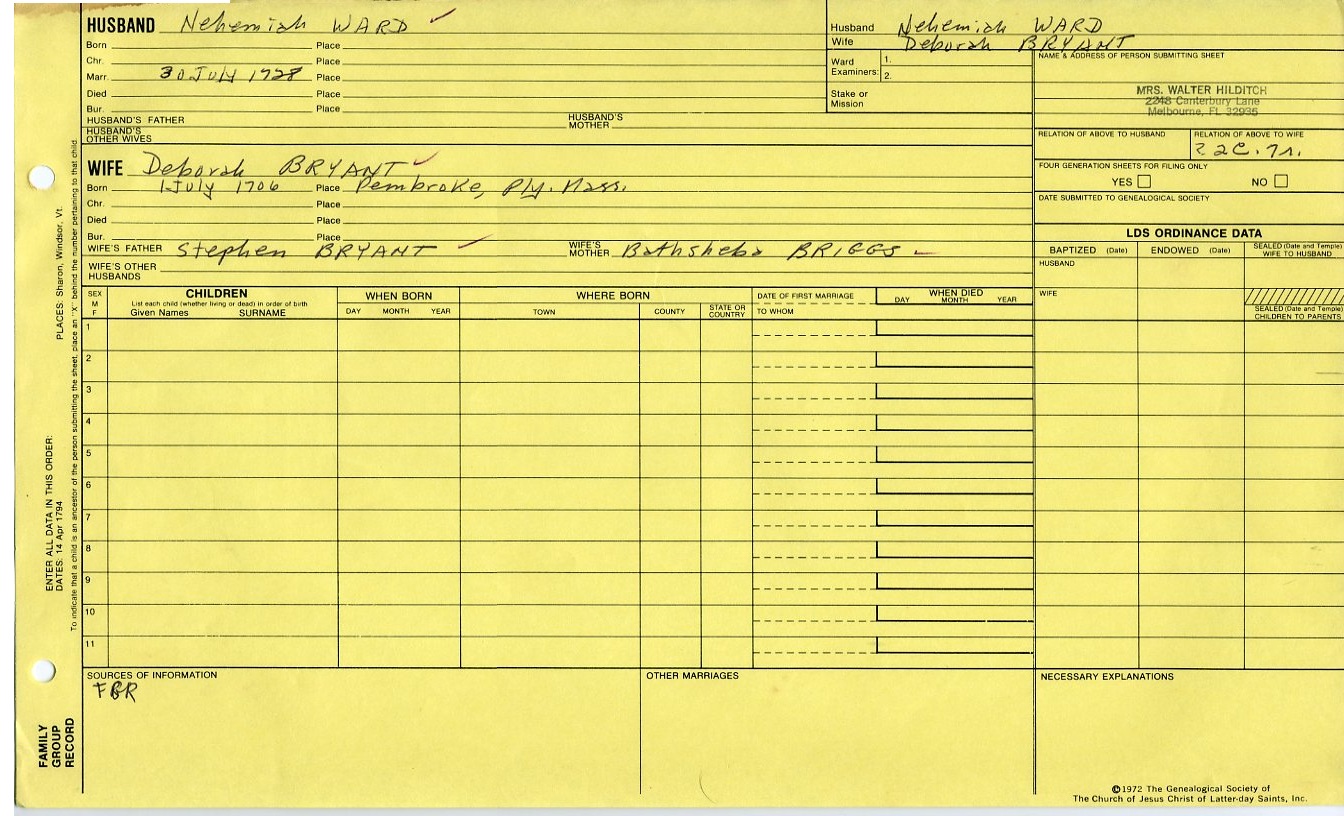 HUSBAND Nehemiah WARD
Born Place
Chr. Place
Marr. 30 July 1728 Place
Died Place
Bur. Place
HUSBAND'S FATHER HUSBAND'S MOTHER
HUSBAND'S OTHER WIVES
Husband Nehemiah WARD
Wife Deborah BRYANT
Ward Examiners: 1.
2.
Stake or Mission
NAME & ADDRESS OF PERSON SUBMITTING SHEET
MRS. WALTER HILDITCH
2248 Canterbury Lane
Melbourne, FL 32935
RELATION OF ABOVE TO HUSBAND RELATION OF ABOVE TO WIFE
2 2C. 7r.
FOUR GENERATION SHEETS FOR FILING ONLY
YES NO
DATE SUBMITTED TO GENEALOGICAL SOCIETY
WIFE Deborah BRYANT
Born 1 July 1706 Place Pembroke, Ply. Mass.
Chr. Place
Died Place
Bur. Place
WIFE'S FATHER Stephen BRYANT WIFE'S MOTHER Bathsheba BRIGGS
WIFE'S OTHER HUSBANDS
LDS ORDINANCE DATA
BAPTIZED (Date) ENDOWED (Date) SEALED (Date and Temple) WIFE TO HUSBAND
HUSBAND
WIFE
SEALED (Date and Temple) CHILDREN TO PARENTS
SEX M F
CHILDREN
List each child (whether living or dead) in order of birth
Given Names SURNAME
WHEN BORN
DAY MONTH YEAR
WHERE BORN
TOWN COUNTY STATE OR COUNTRY
DATE OF FIRST MARRIAGE
TO WHOM
WHEN DIED
DAY MONTH YEAR
1
2
3
4
5
6
7
8
9
10
11
SOURCES OF INFORMATION
FBR
OTHER MARRIAGES
NECESSARY EXPLANATIONS
©1972 The Genealogical Society of
The Church of Jesus Christ of Latter-day Saints, Inc.
FAMILY GROUP RECORD
ENTER ALL DATA IN THIS ORDER:
DATES: 14 Apr 1794 PLACES: Sharon, Windsor, Vt.
To indicate that a child is an ancestor of the person submitting the sheet, place an "X" behind the number pertaining to that child.